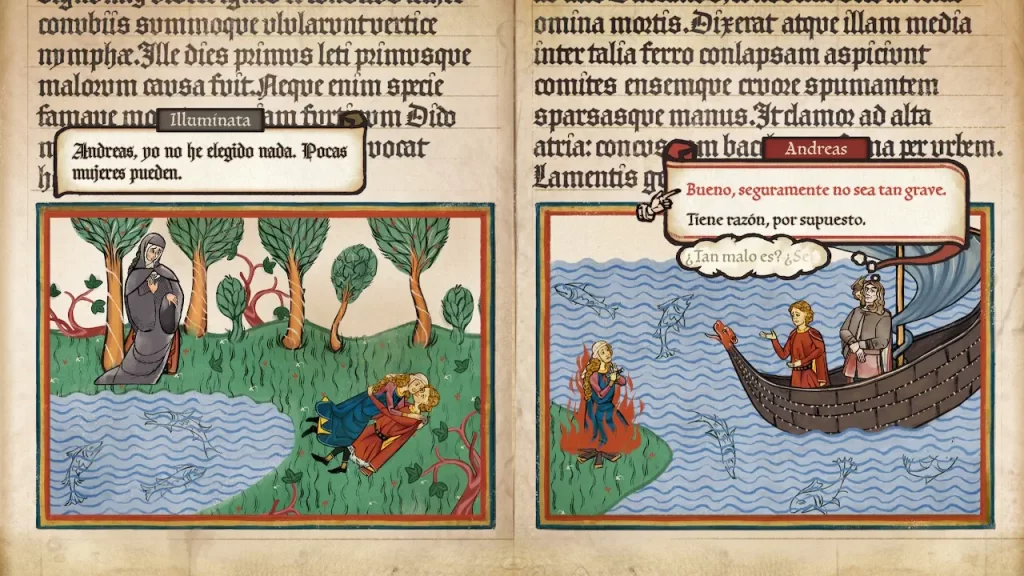 conubiis summoque ulularunt vertice
nymphæ. Ille dies primus leti primusque
malorum causa fuit. Neque enim specie
famave Dido
vocat
Illuminata
Andreas, yo no he elegido nada. Pocas
mujeres pueden.
omina mortis. Dixerat atque illam media
inter talia ferro conlapsam aspiciunt
comites ensemque cruore spumantem
sparsasque manus. It clamor ad alta
atria: per urbem.
Lamentis
Andreas
Bueno, seguramente no sea tan grave.
Tiene razón, por supuesto.
¿Tan malo es? ¿Se